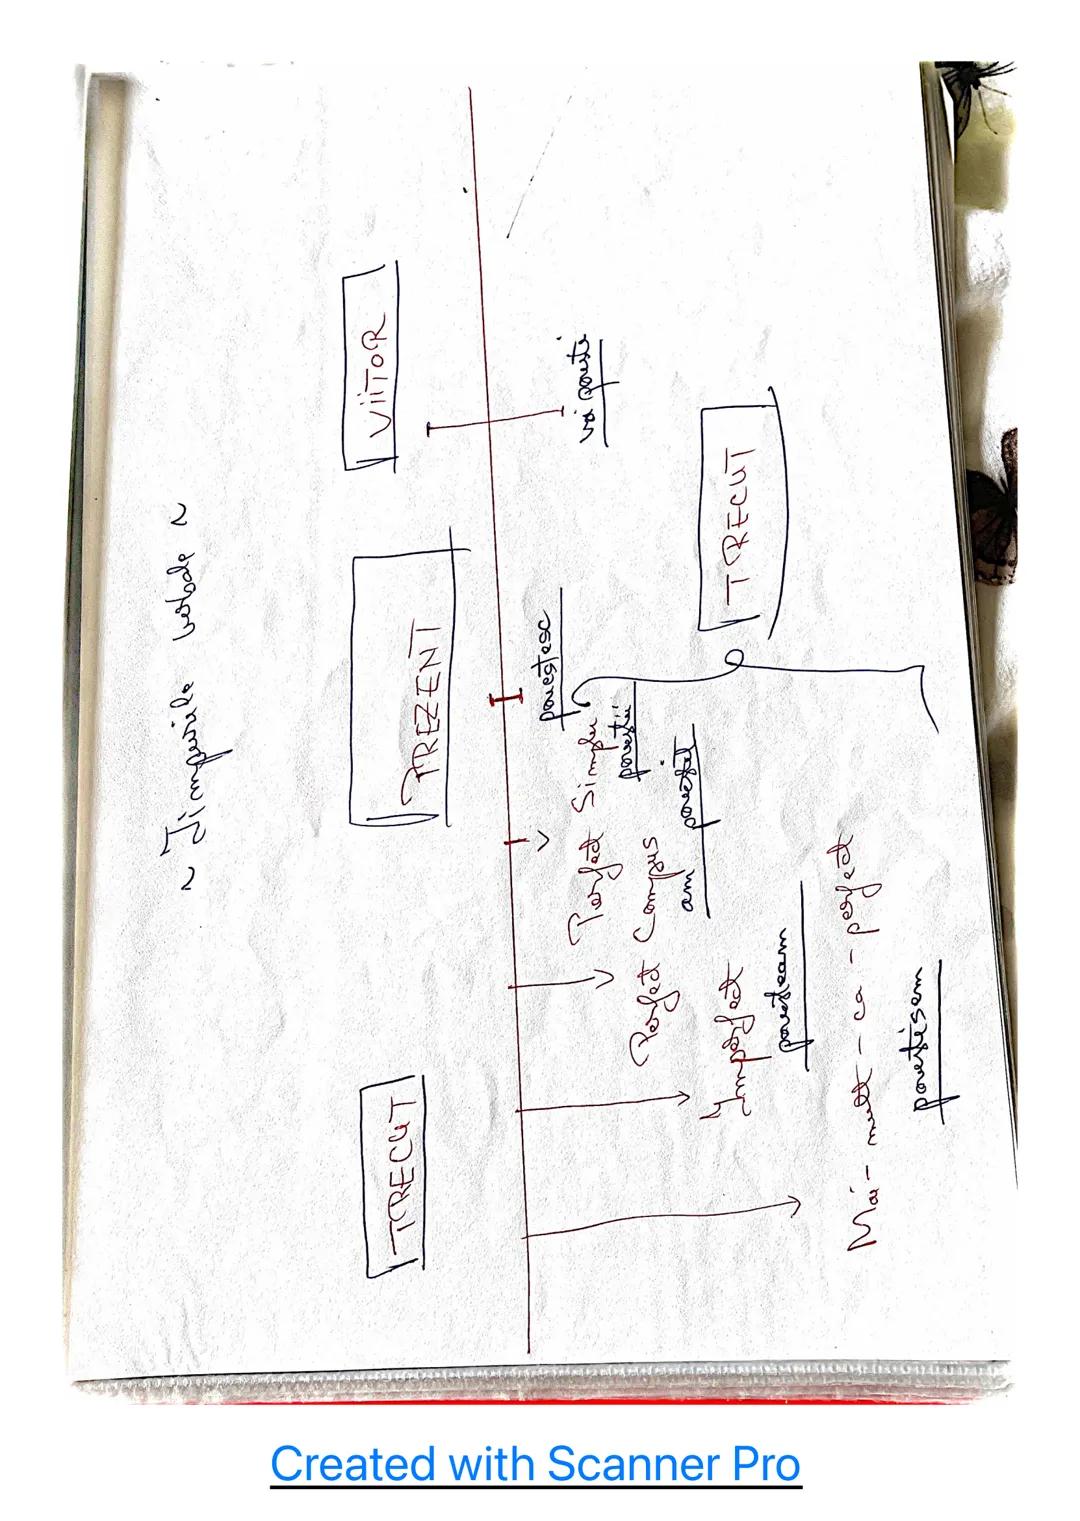 ~ Timpurile verbale ~
TRECUT
PREZENT
VIITOR
povestesc
voi povesti
Perfect Simplu
povestii
Perfect Compus
am povestit
Imperfect
povesteam
Mai - mult - ca - perfect
povestisem
TRECUT
Created with Scanner Pro